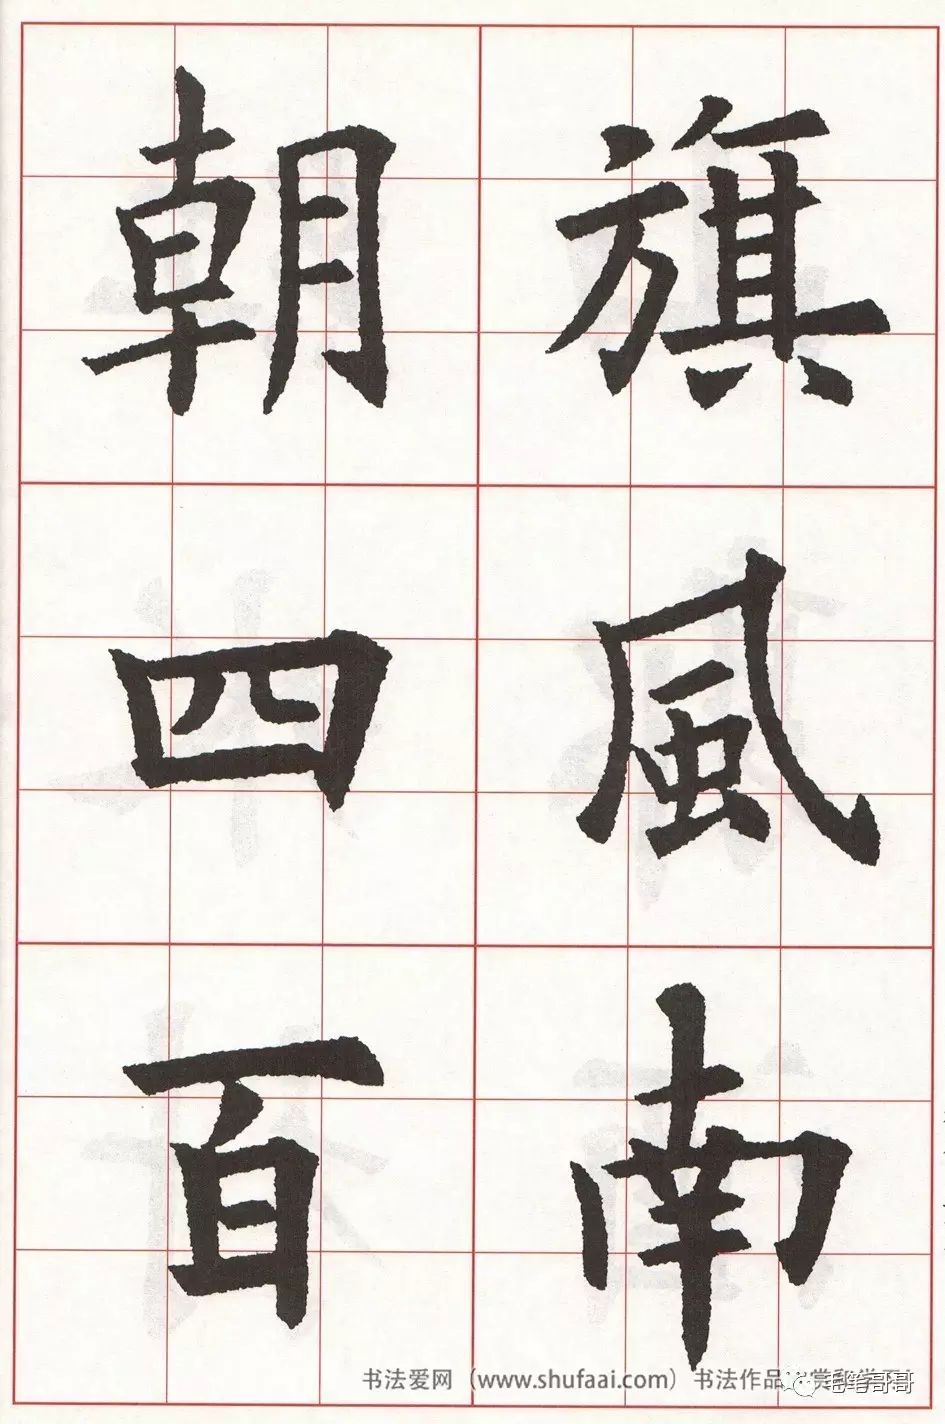 旗風南
朝四百
书法爱网（www.shufaai.com）书法作品
毛笔哥哥